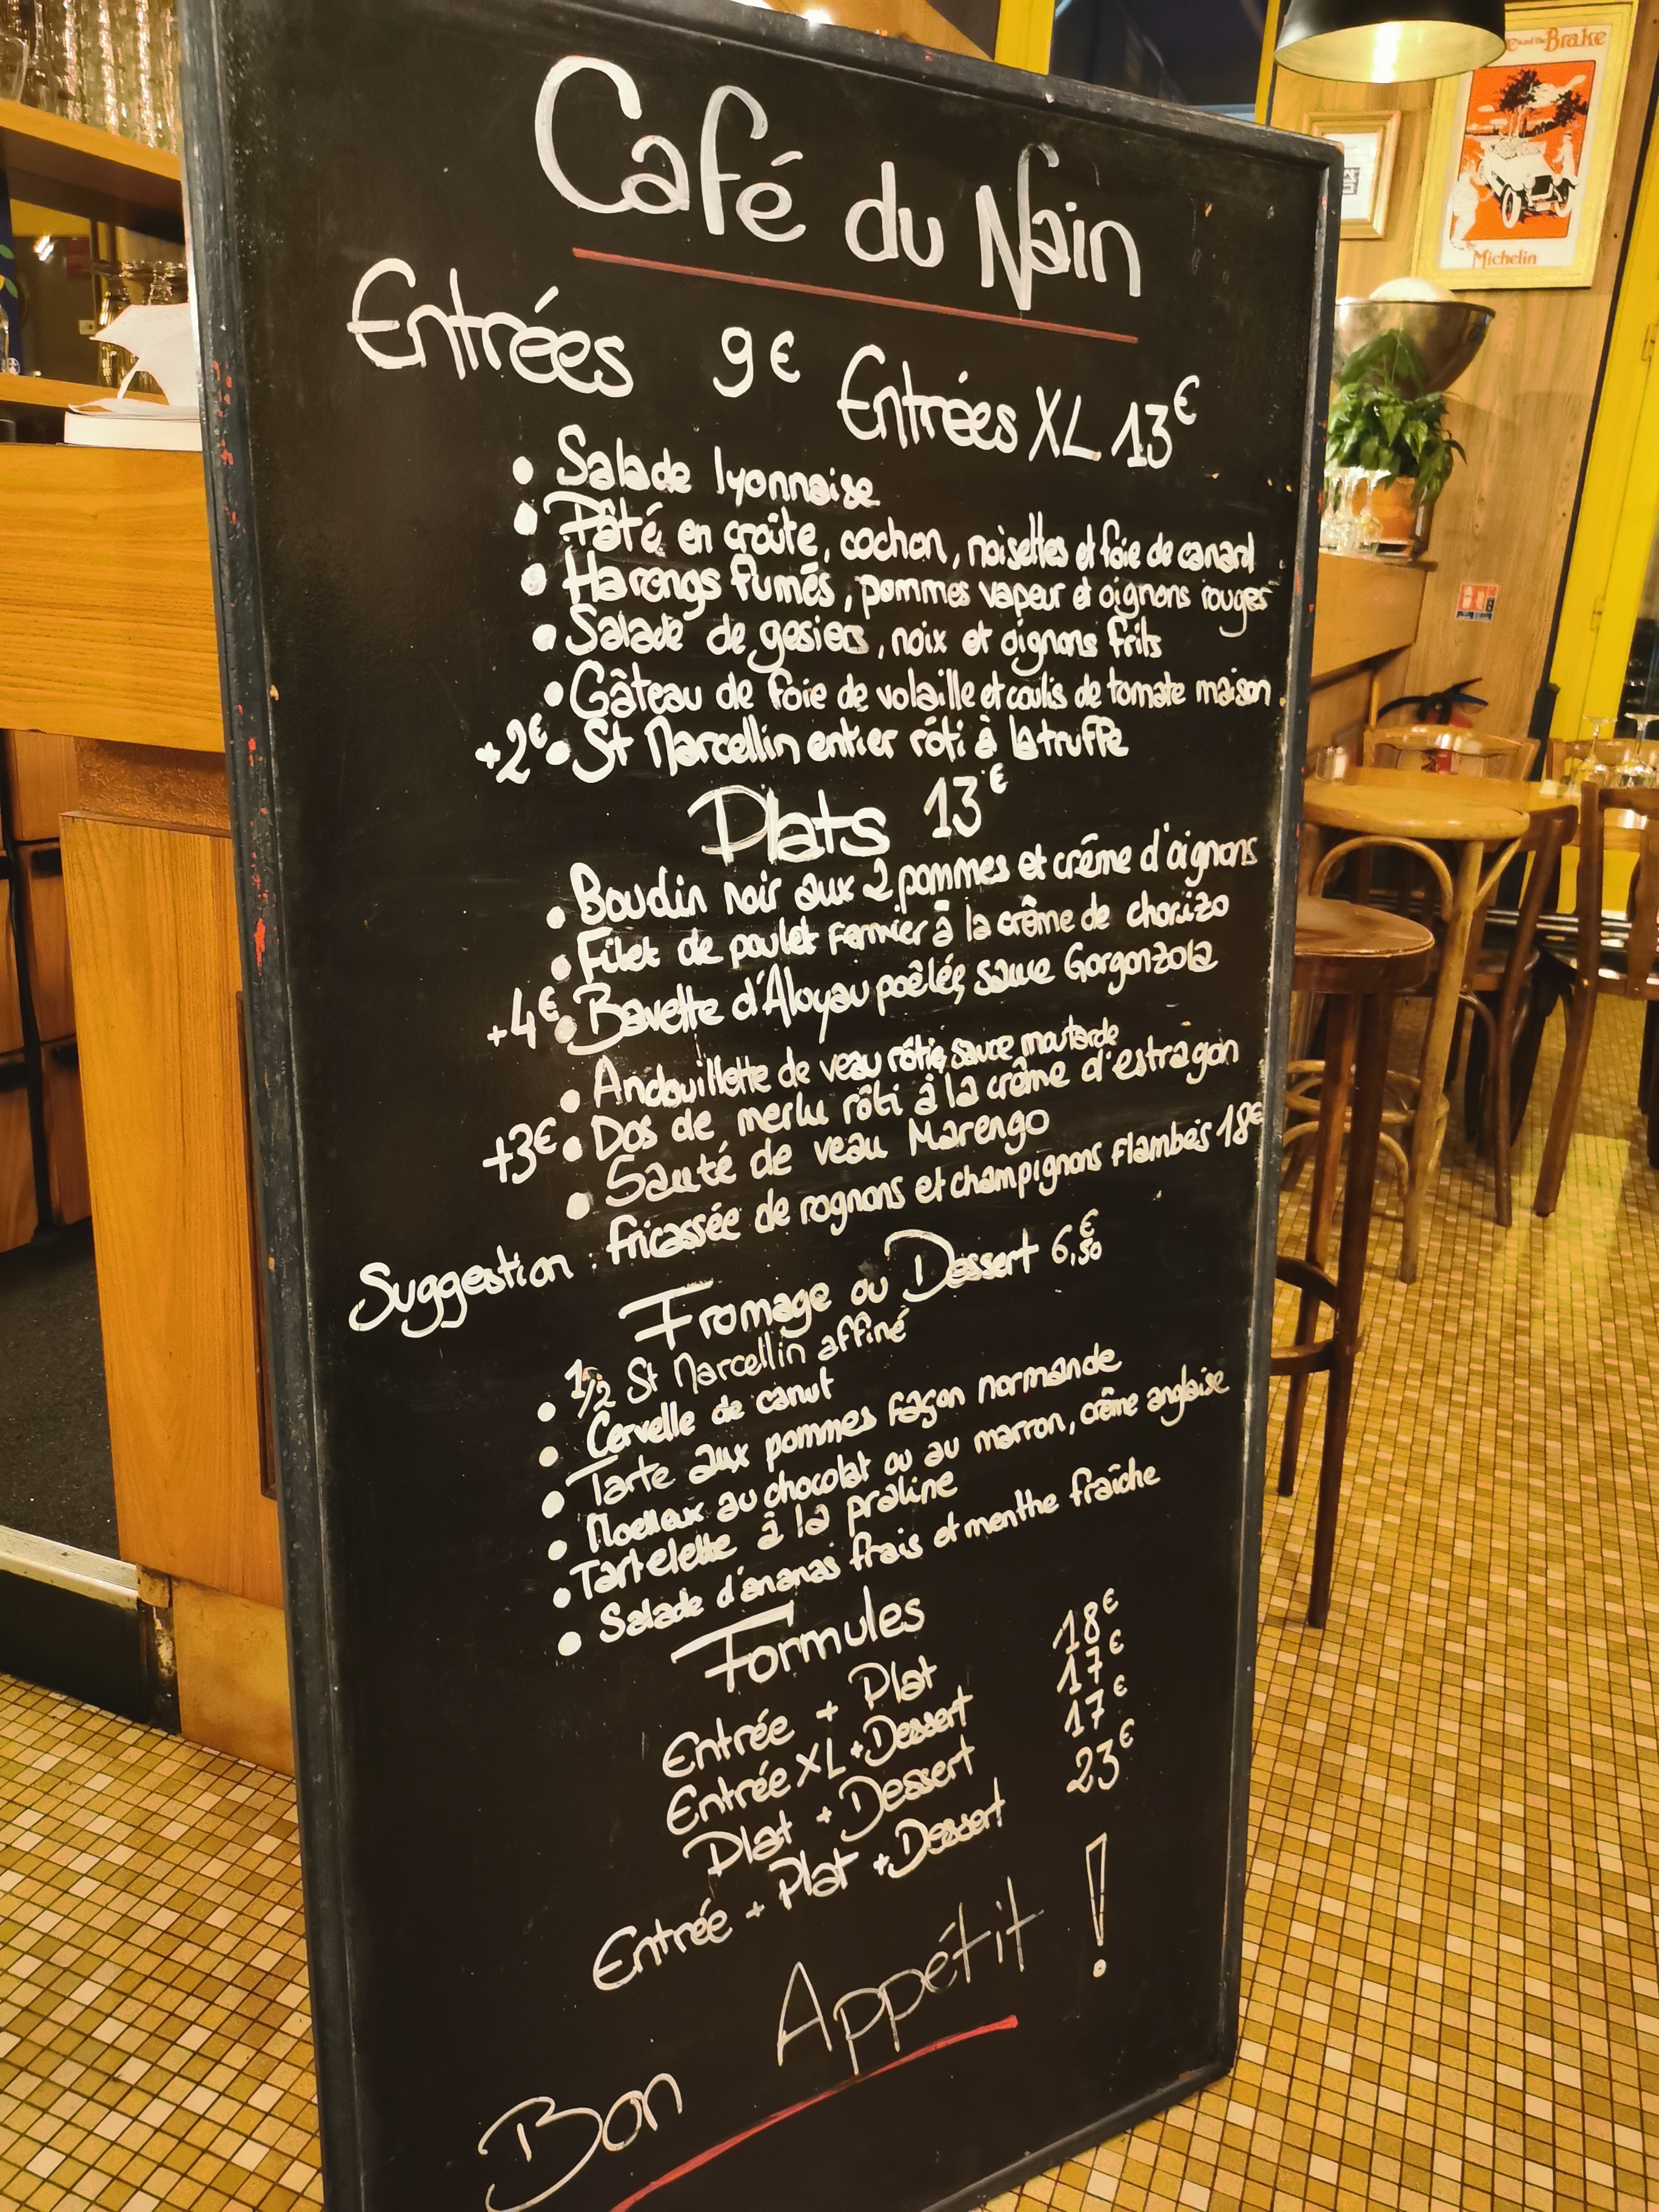 Café du Nain
Entrées 9€ Entrées XL 13€
• Salade lyonnaise
• Pâté en croûte, cochon, noisettes et foie de canard
• Harengs fumés, pommes vapeur et oignons rouges
• Salade de gesiers, noix et oignons frits
• Gâteau de foie de volaille et coulis de tomate maison
+2€ • St Marcellin entier rôti à la truffe
Plats 13€
• Boudin noir aux 2 pommes et crème d'oignons
• Filet de poulet fermier à la crème de chorizo
+4€ • Bavette d'Aloyau poêlée, sauce Gorgonzola
• Andouillette de veau rôtie, sauce moutarde
+3€ • Dos de merlu rôti à la crème d'estragon
• Sauté de veau Marengo
Suggestion : fricassée de rognons et champignons flambés 18€
Fromage ou Dessert 6,50€
• 1/2 St Marcellin affiné
• Cervelle de canut
• Tarte aux pommes façon normande
• Moelleux au chocolat ou au marron, crème anglaise
• Tartelette à la praline
• Salade d'ananas frais et menthe fraîche
Formules
Entrée + Plat 18€
Entrée XL + Dessert 17€
Plat + Dessert 17€
Entrée + Plat + Dessert 23€
Bon Appétit !
and the Brake
Michelin